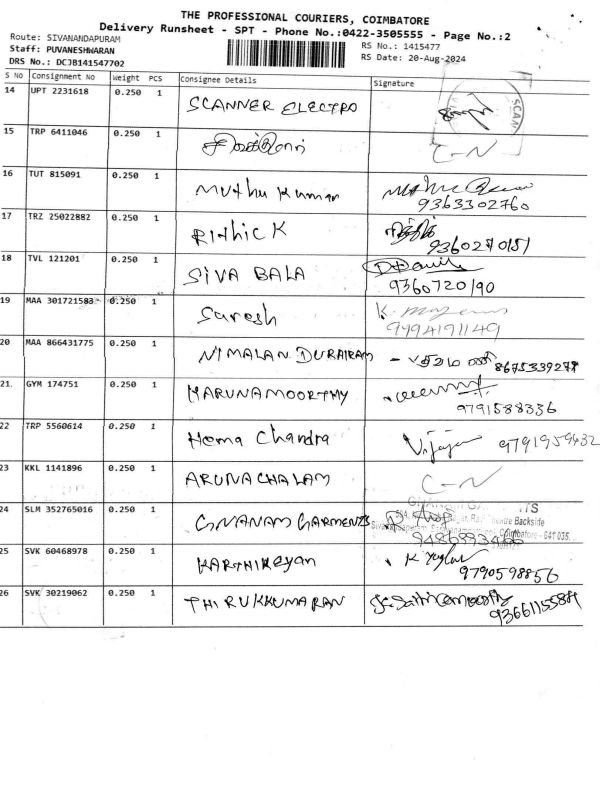 THE PROFESSIONAL COURIERS, COIMBATORE
Delivery Runsheet - SPT - Phone No.:0422-3505555 - Page No.:2
Route: SIVANANDAPURAM
Staff: PUVANESHWARAN
RS No.: 1415477
DRS No.: DCJB141547702
RS Date: 20-Aug-2024
S NO Consignment No Weight PCS Consignee Details Signature
14 UPT 2231618 0.250 1 SCANNER ELECTRO SCAN
15 TRP 6411046 0.250 1 C-N
16 TUT 815091 0.250 1 Muthu Kumar
9363302760
17 TRZ 25022882 0.250 1 RIthIcK
9360270151
18 TVL 121201 0.250 1 SIVA BALA
9360720190
19 MAA 301721583 0.250 1 Suresh K.
9494191149
20 MAA 866431775 0.250 1 NIMALAN DURAIRAM 8675339277
21. GYM 174751 0.250 1 KARUNAMOORTHY
9791588336
22 TRP 5560614 0.250 1 Hema Chandra 9791959632
23 KKL 1141896 0.250 1 ARUNACHALAM C-N
24 SLM 352765016 0.250 1 GNANAM GARMENTS
Backside
Coimbatore - 641 035
25 SVK 60468978 0.250 1 KARTHIKeyan K
9790598856
26 SVK 30219062 0.250 1 THIRUKKUMARAN